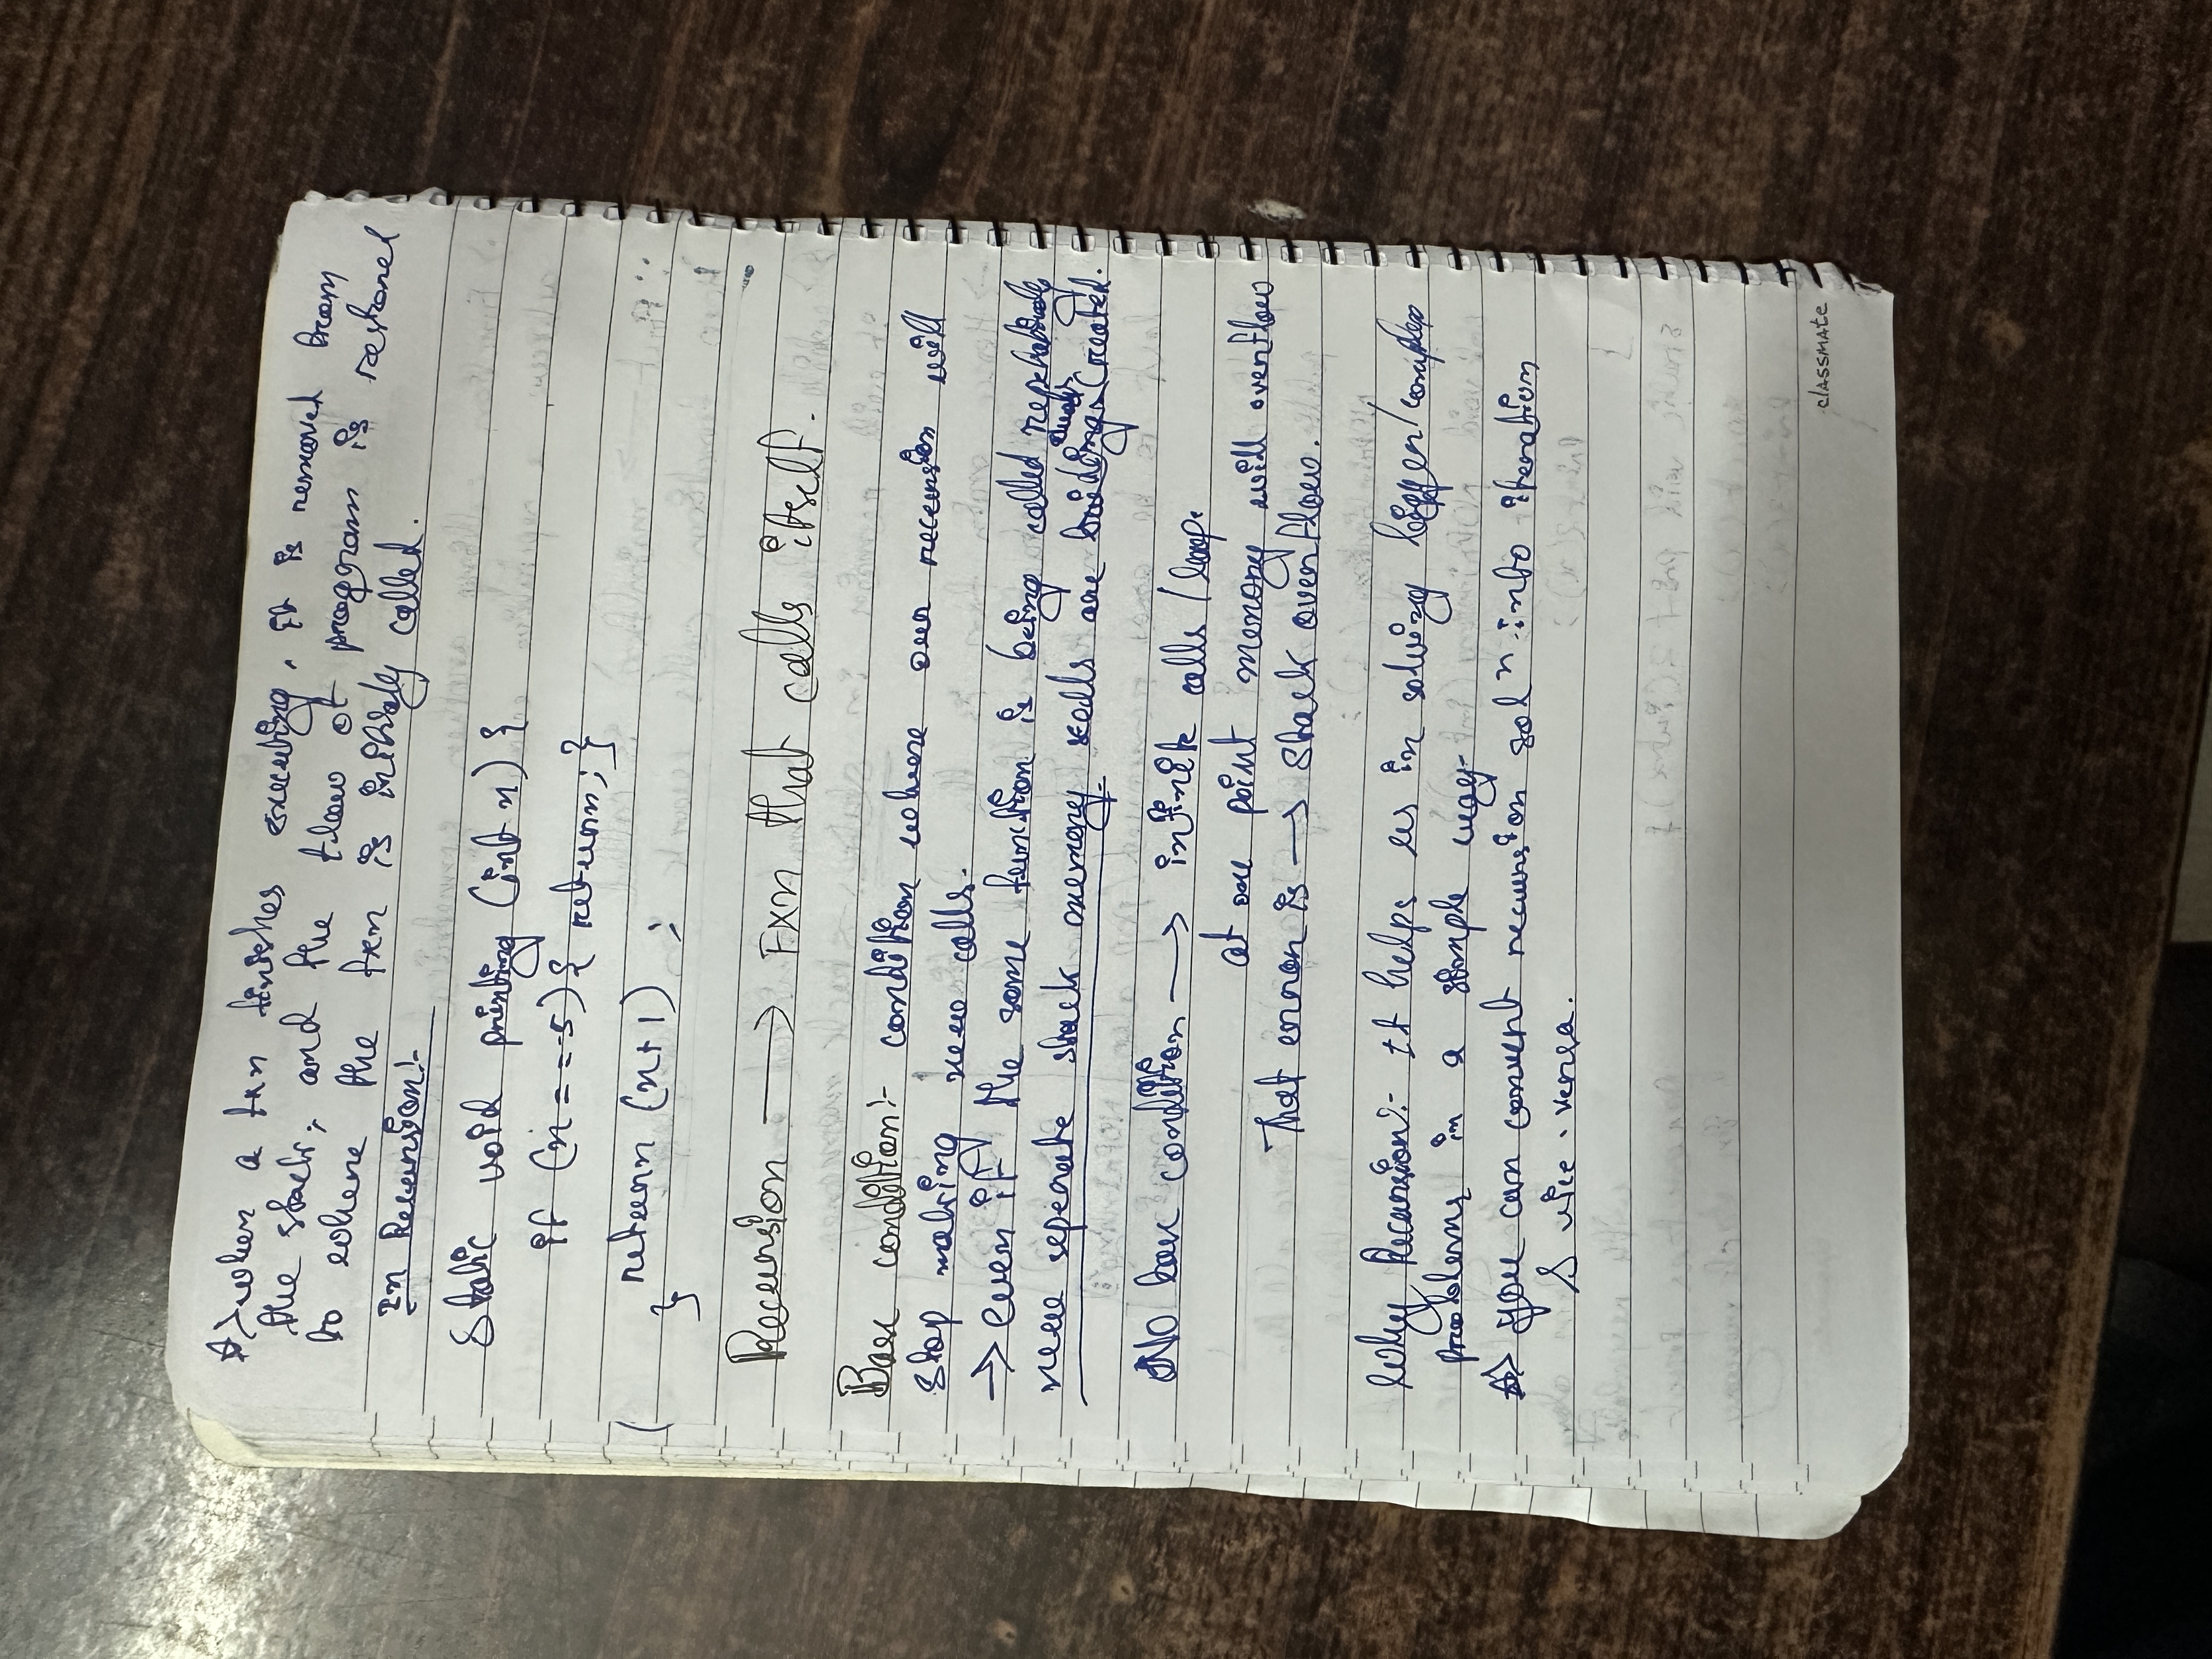 ⇒ when a fxn finishes executing, it is removed from
the stack, and the flow of proggram is restored
to where the fxn is initialy called.
In Recursion:-
Static void printing (int n) {
if (n == 5) { return; }
return (n+1) ;
}
Recursion → Fxn that calls itself.
Base condition:- condition where our recursion will
stop making new calls.
→ even if the same function is being called repetatively
new seperate stack memory calls are created.
No base condition → infinite calls / loop.
at one point memory will overflow
That error is → stack overflow.
Why Recursion:- It helps us in solving bigger/complex
problems in a simple way.
⇒ you can convert recursion solⁿ into iteration
& vice-versa.
classmate